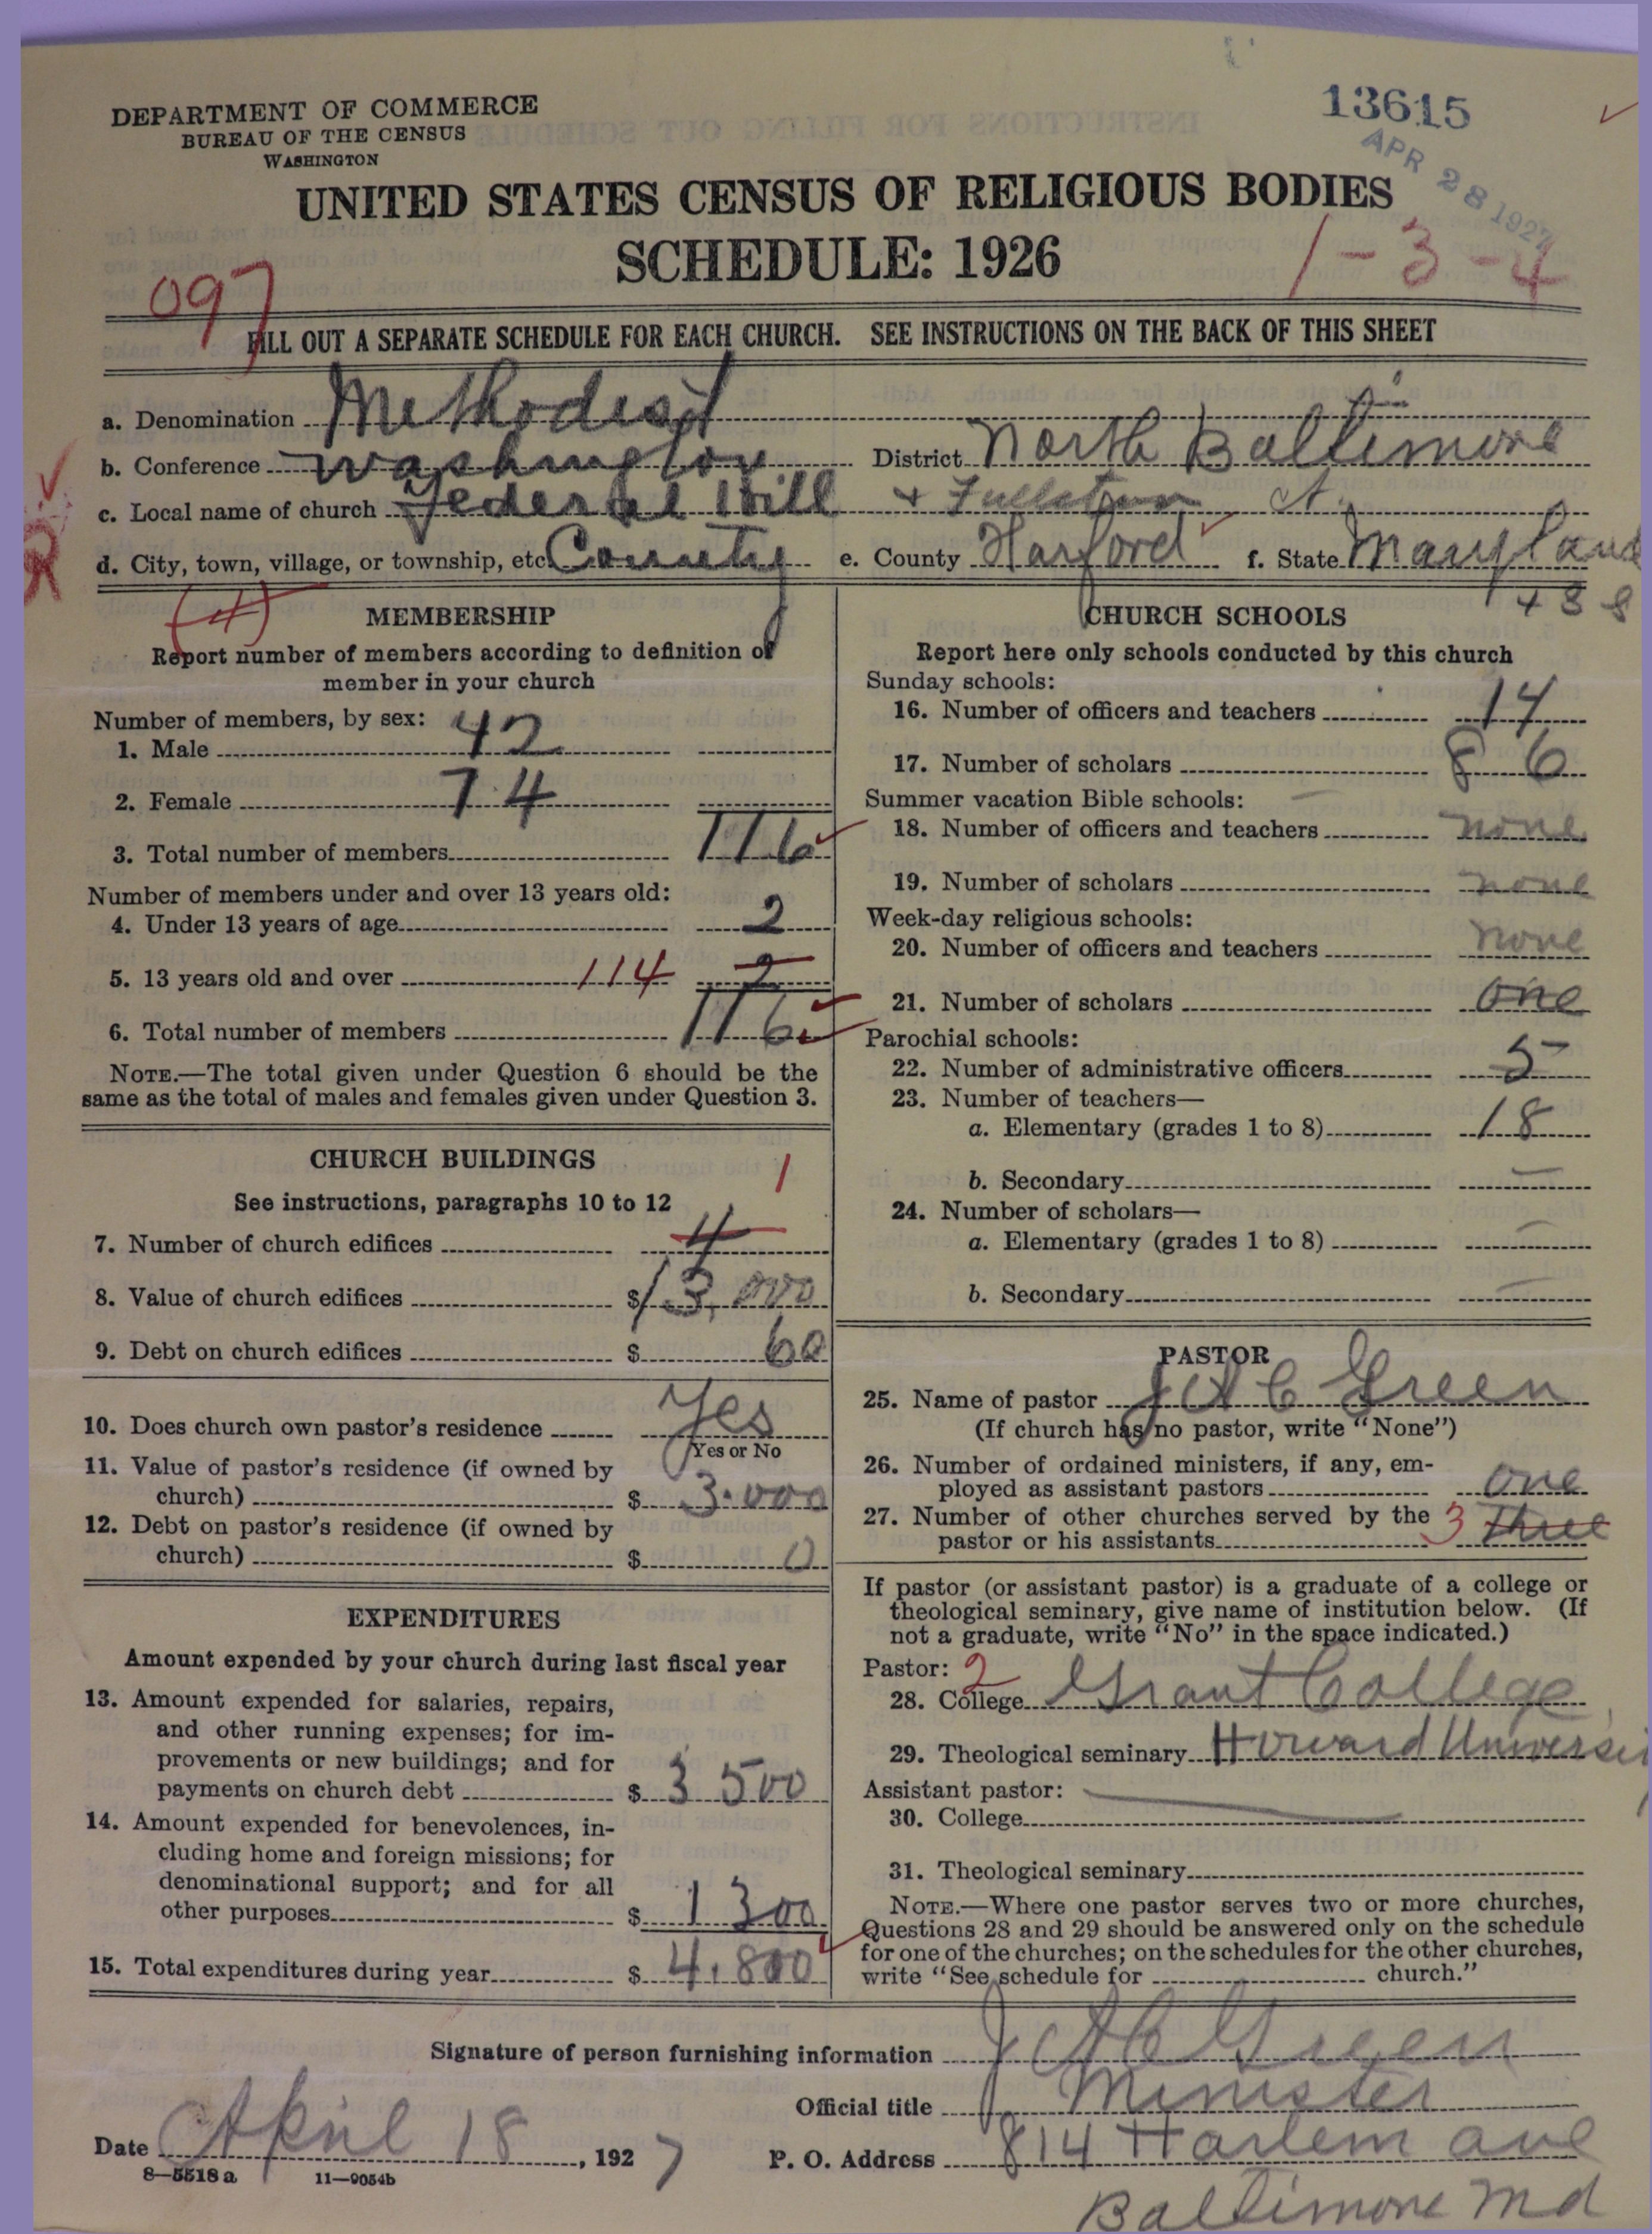 DEPARTMENT OF COMMERCE
BUREAU OF THE CENSUS
WASHINGTON
13615
APR 28 1927
UNITED STATES CENSUS OF RELIGIOUS BODIES
SCHEDULE: 1926
1-3-4
097
FILL OUT A SEPARATE SCHEDULE FOR EACH CHURCH. SEE INSTRUCTIONS ON THE BACK OF THIS SHEET
a. Denomination Methodist
b. Conference Washington District North Baltimore
c. Local name of church Federal Hill +
d. City, town, village, or township, etc. County e. County Harford f. State Maryland
(4)
MEMBERSHIP
Report number of members according to definition of
member in your church
Number of members, by sex:
1. Male 42
2. Female 74
3. Total number of members 116
Number of members under and over 13 years old:
4. Under 13 years of age 2
5. 13 years old and over 114 2
6. Total number of members 116
NOTE.—The total given under Question 6 should be the
same as the total of males and females given under Question 3.
CHURCH BUILDINGS
See instructions, paragraphs 10 to 12
1
7. Number of church edifices 4
8. Value of church edifices $ 13,000
9. Debt on church edifices $ 60
10. Does church own pastor's residence Yes
Yes or No
11. Value of pastor's residence (if owned by
church) $ 3.000
12. Debt on pastor's residence (if owned by
church) $ 0
EXPENDITURES
Amount expended by your church during last fiscal year
13. Amount expended for salaries, repairs,
and other running expenses; for im-
provements or new buildings; and for
payments on church debt $ 3 500
14. Amount expended for benevolences, in-
cluding home and foreign missions; for
denominational support; and for all
other purposes $ 1 300
15. Total expenditures during year $ 4.800
CHURCH SCHOOLS
Report here only schools conducted by this church
Sunday schools:
16. Number of officers and teachers 14
17. Number of scholars 86
Summer vacation Bible schools:
18. Number of officers and teachers none
19. Number of scholars none
Week-day religious schools:
20. Number of officers and teachers none
21. Number of scholars one
Parochial schools:
22. Number of administrative officers 5
23. Number of teachers—
a. Elementary (grades 1 to 8) 18
b. Secondary —
24. Number of scholars—
a. Elementary (grades 1 to 8) —
b. Secondary —
PASTOR
25. Name of pastor J A C Green
(If church has no pastor, write "None")
26. Number of ordained ministers, if any, em-
ployed as assistant pastors one
27. Number of other churches served by the
pastor or his assistants 3 Three
If pastor (or assistant pastor) is a graduate of a college or
theological seminary, give name of institution below. (If
not a graduate, write "No" in the space indicated.)
Pastor: 2
28. College Grant College
29. Theological seminary Howard
Assistant pastor:
30. College
31. Theological seminary
NOTE.—Where one pastor serves two or more churches,
Questions 28 and 29 should be answered only on the schedule
for one of the churches; on the schedules for the other churches,
write "See schedule for church."
Signature of person furnishing information J A C Green
Official title Minister
Date April 18, 1927 P. O. Address 814 Harlem ave
8—5518a 11—9054b
Baltimore Md